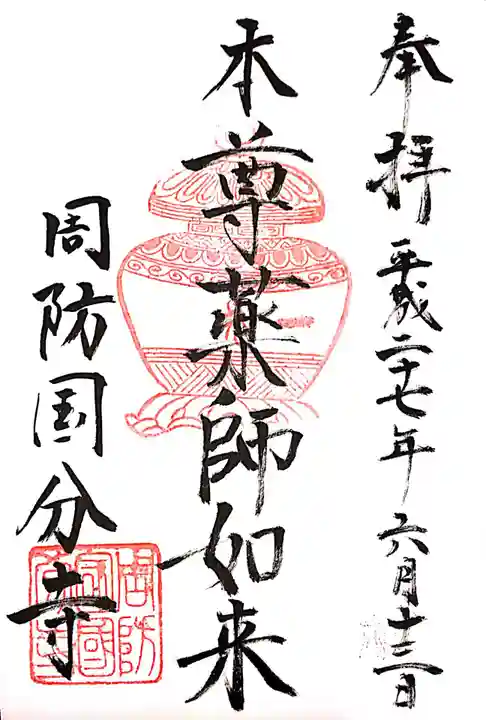 奉拝 平成二十七年六月十三日
本尊薬師如来
周防国分寺